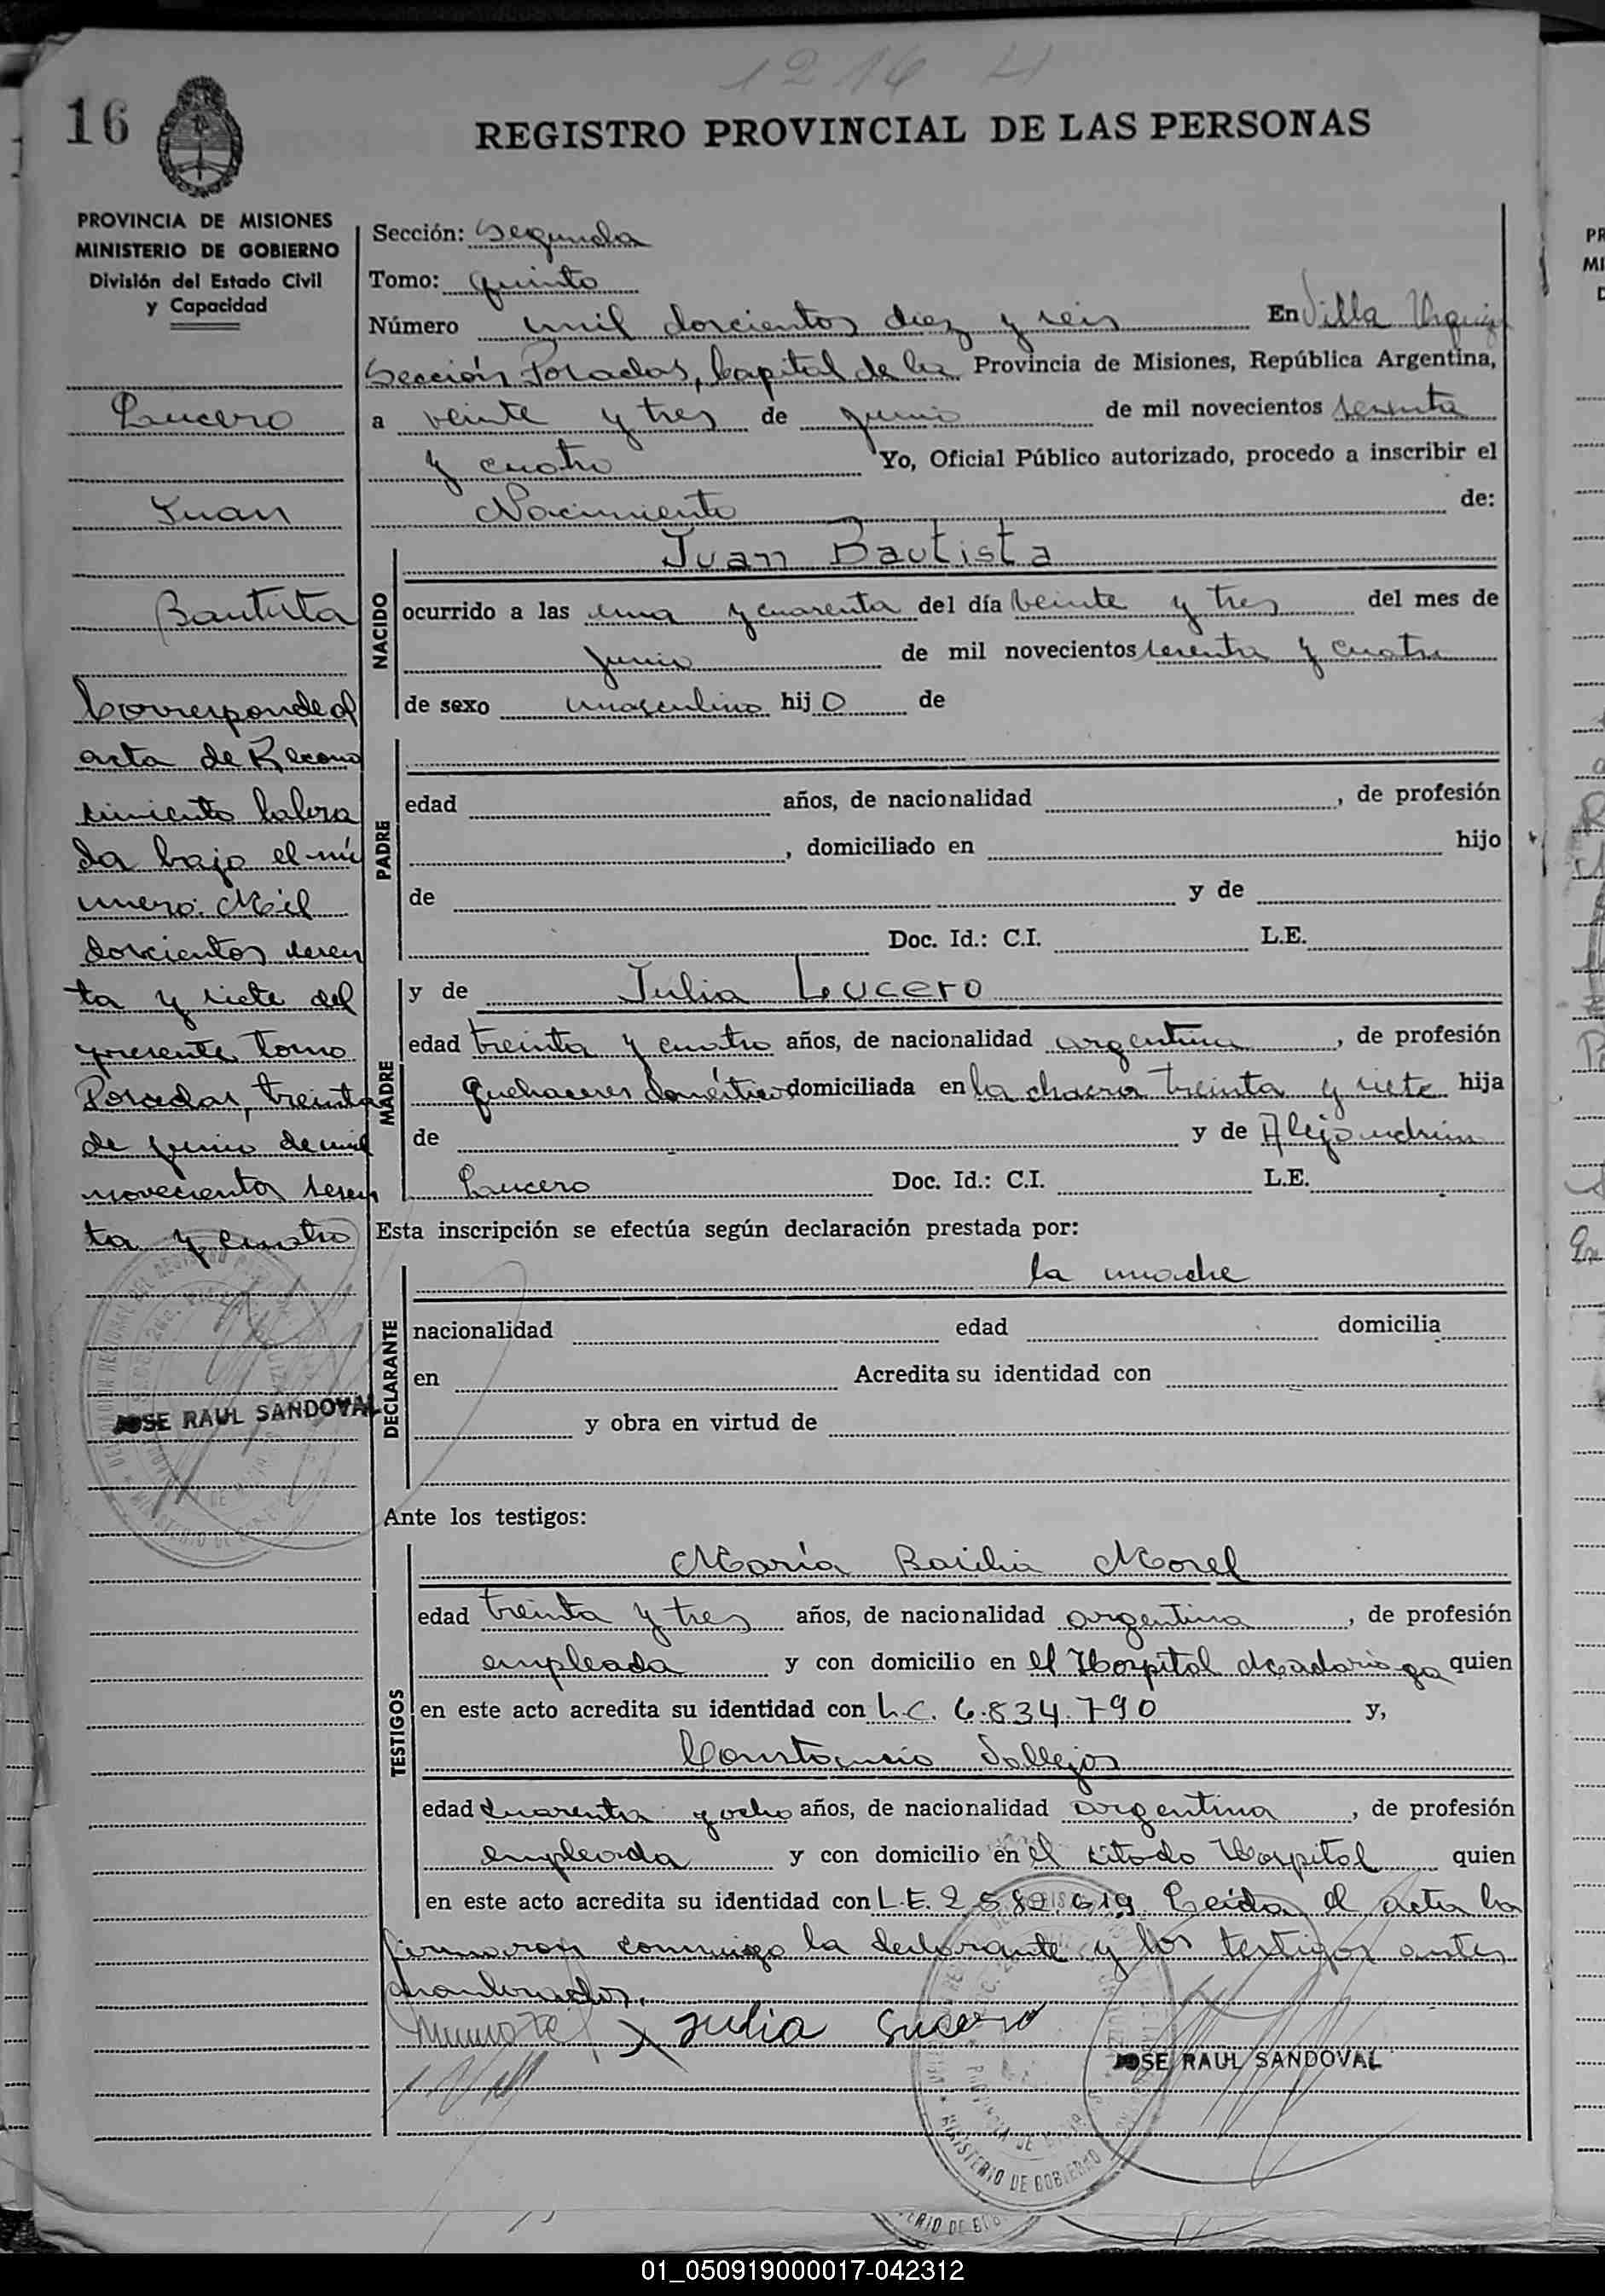 1216 H
16
REGISTRO PROVINCIAL DE LAS PERSONAS
PROVINCIA DE MISIONES
MINISTERIO DE GOBIERNO
División del Estado Civil
y Capacidad
Lucero
Juan
Bautista
Corresponde al
acta de Recono
cimiento labra
da bajo el nú
mero: Mil
doscientos seten
ta y siete del
presente tomo
Posadas, treinta
de junio de mil
novecientos sesen
ta y cuatro
JOSE RAUL SANDOVAL
Sección: Segunda
Tomo: quinto
Número mil doscientos diez y seis En Villa Urquiza
Sección Posadas, Capital de la Provincia de Misiones, República Argentina,
a veinte y tres de junio de mil novecientos sesenta
y cuatro Yo, Oficial Público autorizado, procedo a inscribir el
Nacimiento de:
NACIDO
Juan Bautista
ocurrido a las una y cuarenta del día veinte y tres del mes de
junio de mil novecientos sesenta y cuatro
de sexo masculino hijo de
PADRE
edad años, de nacionalidad , de profesión
, domiciliado en hijo
de y de
Doc. Id.: C.I. L.E.
MADRE
y de Julia Lucero
edad treinta y cuatro años, de nacionalidad argentina , de profesión
quehaceres domésticos domiciliada en la chacra treinta y siete hija
de y de Alejandrina
Lucero Doc. Id.: C.I. L.E.
Esta inscripción se efectúa según declaración prestada por:
DECLARANTE
la madre
nacionalidad edad domicilia
en Acredita su identidad con
y obra en virtud de
Ante los testigos:
TESTIGOS
María Basilia Morel
edad treinta y tres años, de nacionalidad argentina , de profesión
empleada y con domicilio en el Hospital Madariaga quien
en este acto acredita su identidad con L.C. 6.834.790 y,
Constancio Vallejos
edad cuarenta y ocho años, de nacionalidad argentina , de profesión
empleada y con domicilio en el citado Hospital quien
en este acto acredita su identidad con L.E. 2.582.619 Leída el acta la
firmaron conmigo la declarante y los testigos antes
nombrados.
x Julia Lucero
JOSE RAUL SANDOVAL
MINISTERIO DE GOBIERNO
01_050919000017-042312